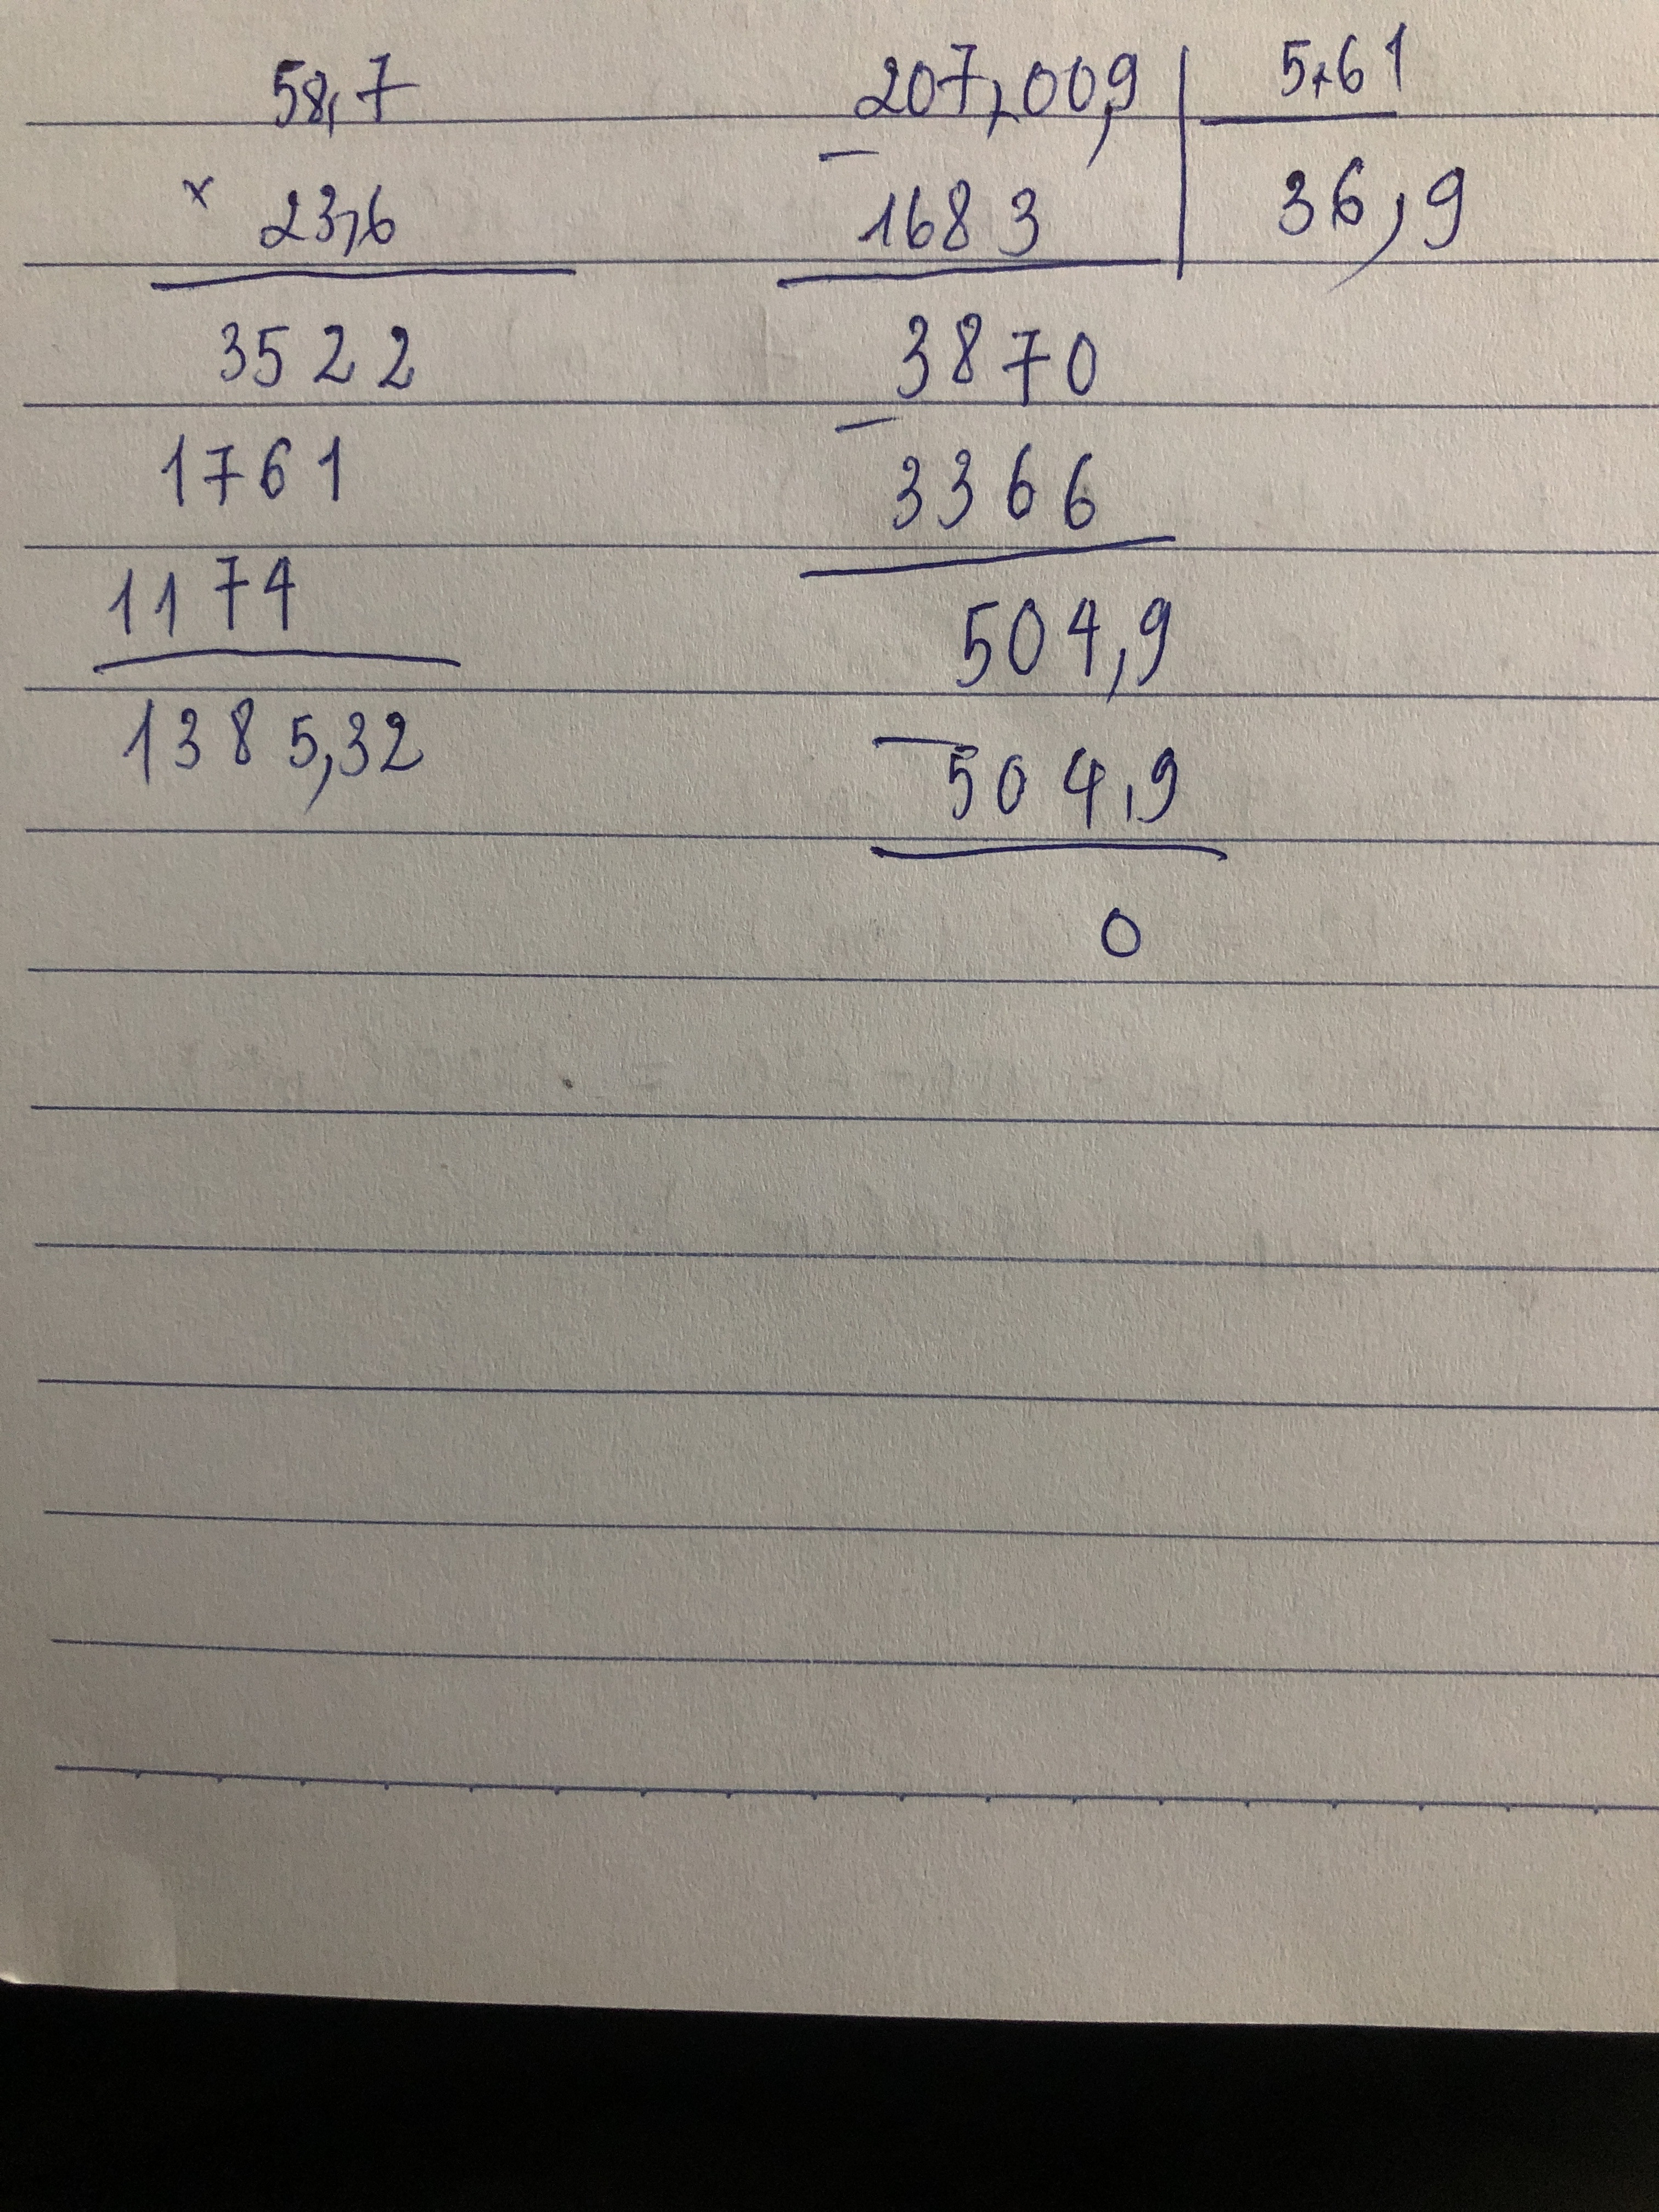 58,7
x 23,6
3522
1761
1174
1385,32
207,00,9 | 5,61
36,9
- 1683
3870
- 3366
504,9
- 504,9
0